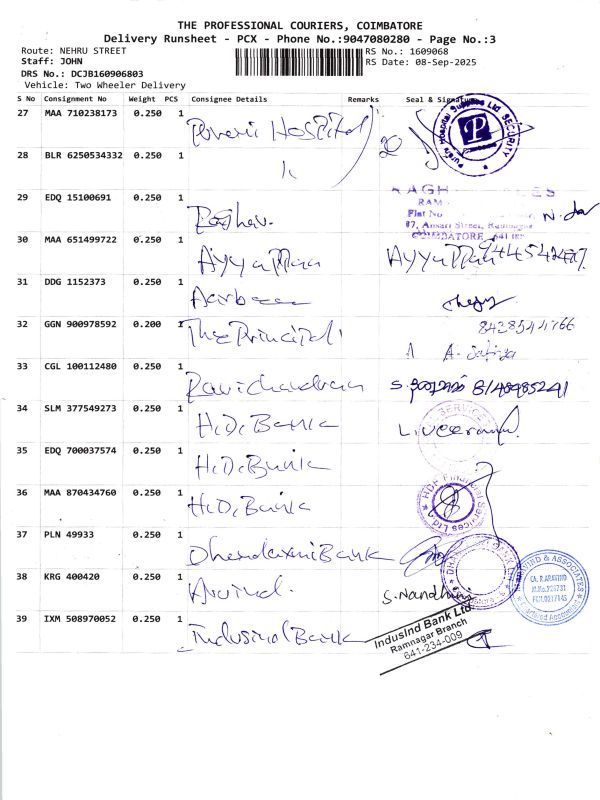 THE PROFESSIONAL COURIERS, COIMBATORE
Delivery Runsheet - PCX - Phone No.:9047080280 - Page No.:3
Route: NEHRU STREET
RS No.: 1609068
Staff: JOHN
RS Date: 08-Sep-2025
DRS No.: DCJB160906803
Vehicle: Two Wheeler Delivery
S No Consignment No Weight PCS Consignee Details Remarks Seal & Signature
27 MAA 710238173 0.250 1 Hospital
SECURITY
P
28 BLR 6250534332 0.250 1
29 EDQ 15100691 0.250 1 Raghav.
Flat No
87, Ansari Street, Ramnagar
COIMBATORE
30 MAA 651499722 0.250 1
31 DDG 1152373 0.250 1
32 GGN 900978592 0.200 1 The Principal
33 CGL 100112480 0.250 1 Ravichandran
34 SLM 377549273 0.250 1 H.D. Bank
35 EDQ 700037574 0.250 1 H.D. Bank
36 MAA 870434760 0.250 1 H.D. Bank
HDF Financial Services Ltd
37 PLN 49933 0.250 1 Bank
38 KRG 400420 0.250 1 Arvind. S. Nandhini
& ASSOCIATES
CA. R.ARAVIND
Chartered Accountants
39 IXM 508970052 0.250 1 Indusind Bank
IndusInd Bank Ltd
Ramnagar Branch
641-234-009